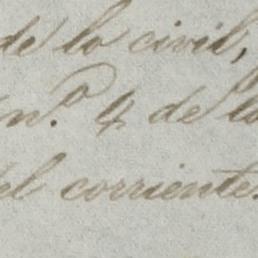 de lo civil,
n.º 4 de lo
del corriente.